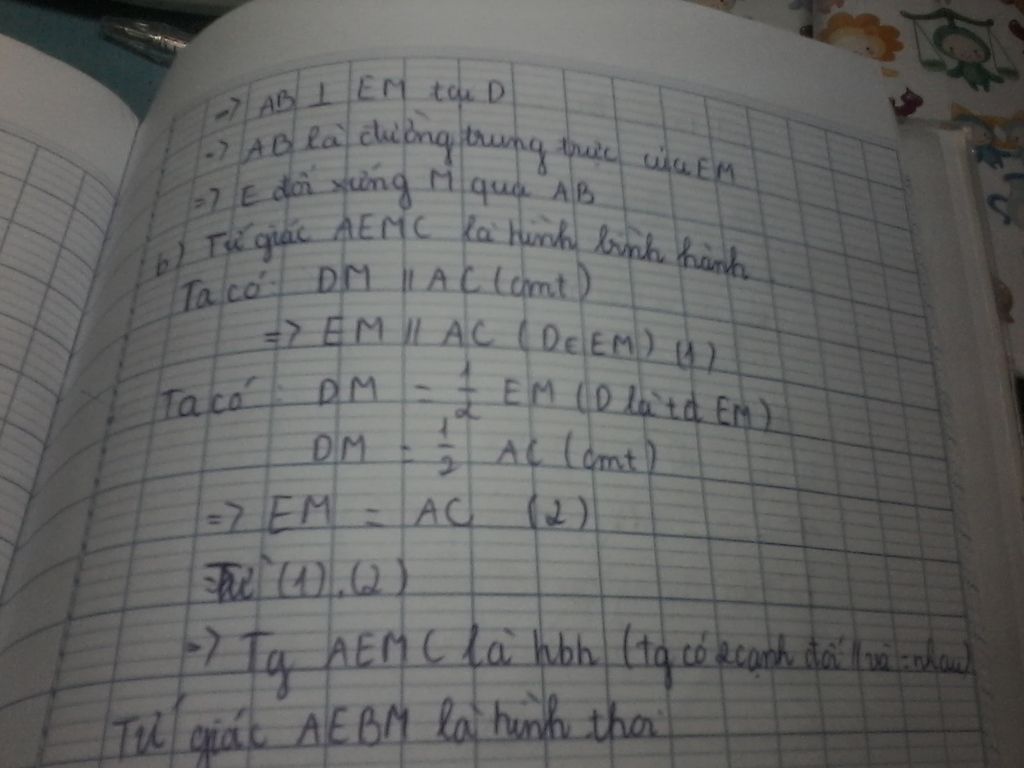 => AB ⊥ EM tại D
=> AB là đường trung trực của EM
=> E đối xứng M qua AB
b) Tứ giác AEMC là hình bình hành
Ta có: DM // AC (cmt)
=> EM // AC (D∈EM) (1)
Ta có: DM = 1/2 EM (D là tđ EM)
DM = 1/2 AC (cmt)
=> EM = AC (2)
Từ (1), (2)
=> Tg AEMC là hbh (tg có 2 cạnh đối // và = nhau)
Tứ giác AEBM là hình thoi